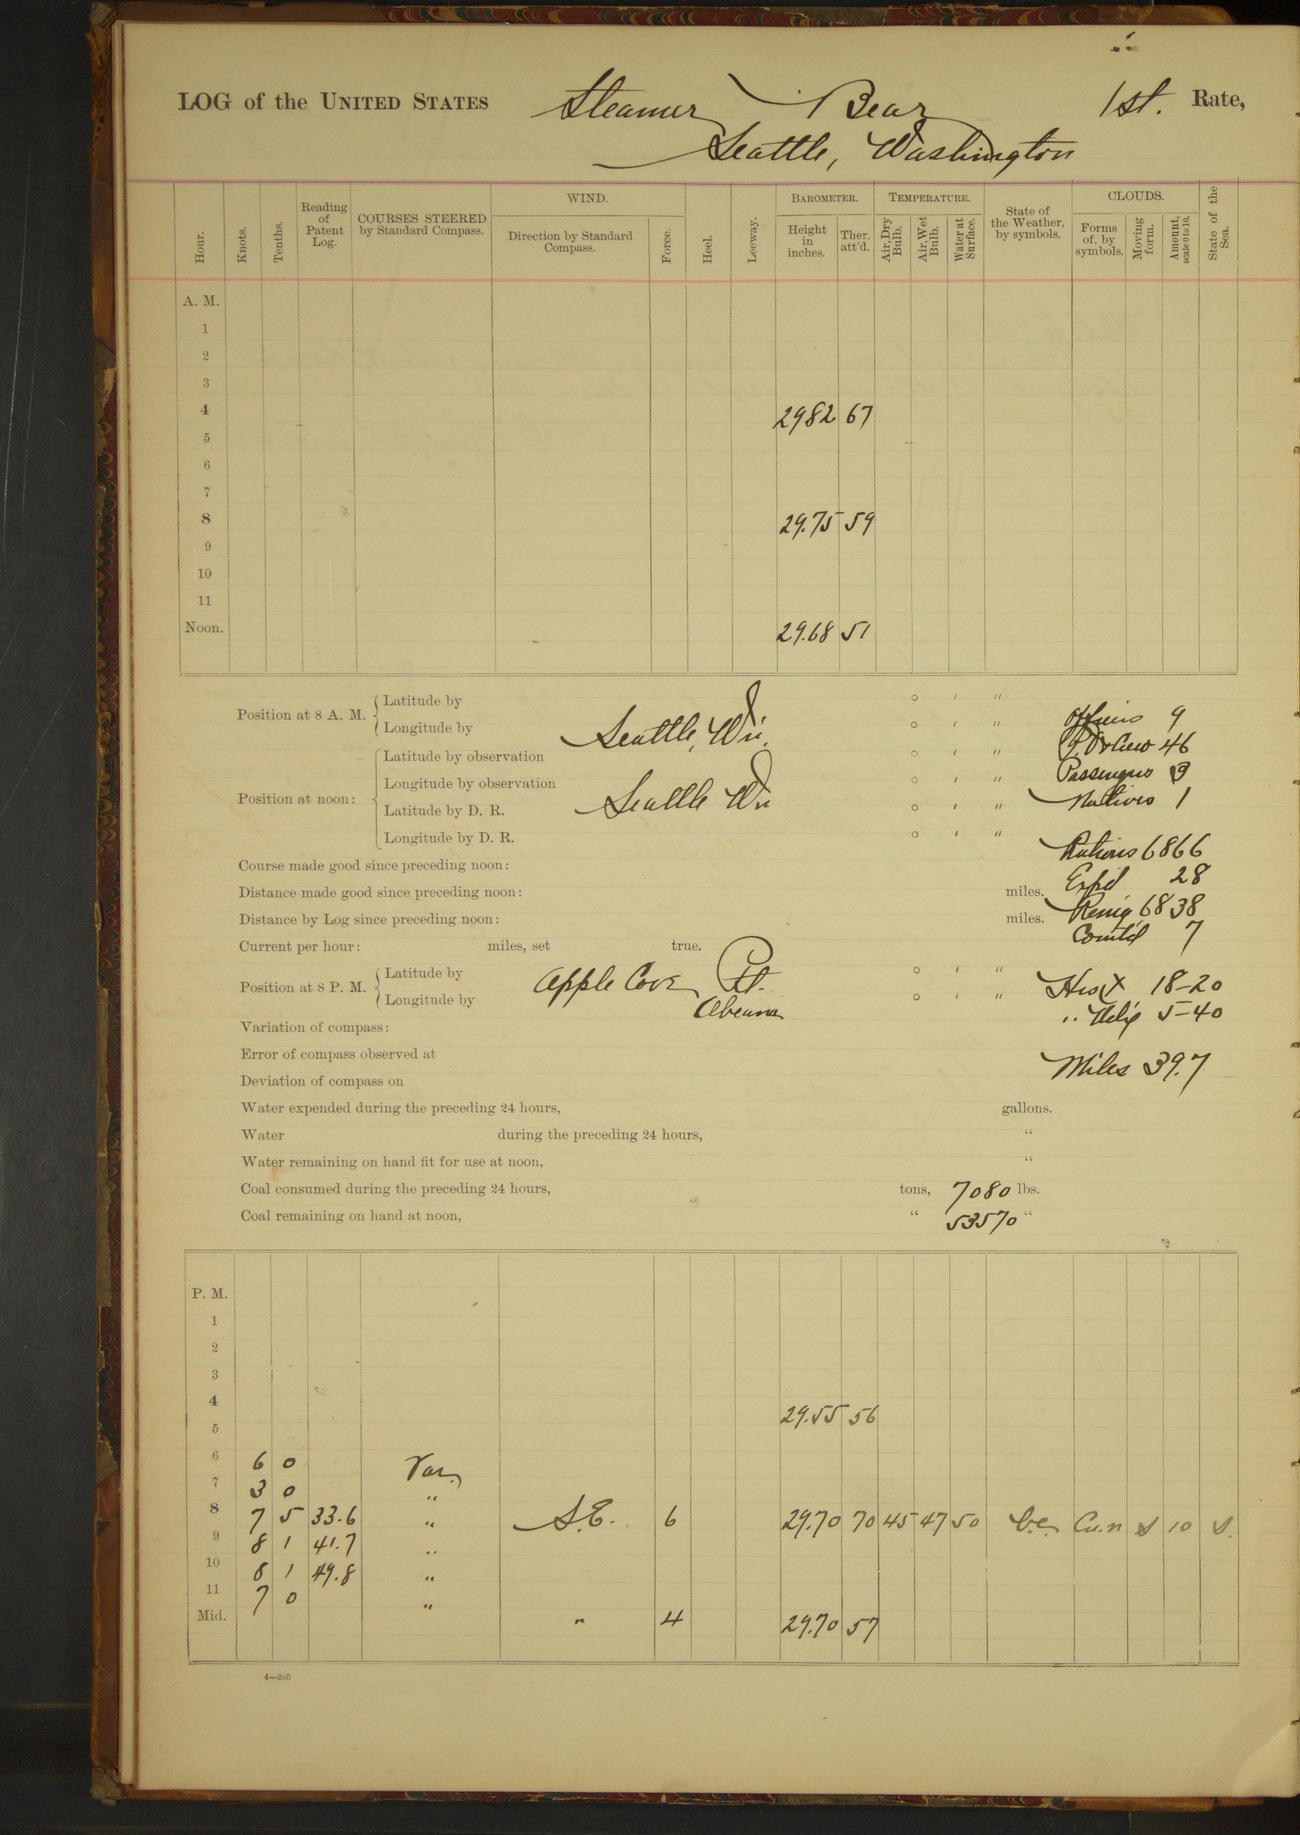 LOG of the UNITED STATES Steamer Bear 1st. Rate,
Seattle, Washington
Hour. Knots. Tenths. Reading of Patent Log. COURSES STEERED by Standard Compass. WIND. Direction by Standard Compass. Force. Heel. Leeway. BAROMETER. Height in inches. Ther. att'd. TEMPERATURE. Air, Dry Bulb. Air, Wet Bulb. Water at Surface. State of the Weather, by symbols. CLOUDS. Forms of, by symbols. Moving form. Amount, scale 0 to 10. State of the Sea.
A. M.
1
2
3
4 2982 67
5
6
7
8 29.75 59
9
10
11
Noon. 29.68 51
Position at 8 A. M. { Latitude by ° ′ ″
Longitude by Seattle, Wn. ° ′ ″ Officers 9
Position at noon: { Latitude by observation ° ′ ″ Crew 46
Longitude by observation ° ′ ″ Passengers 3
Latitude by D. R. Seattle Wn ° ′ ″ Natives 1
Longitude by D. R. ° ′ ″ Rations 6866
Course made good since preceding noon: Expd 28
Distance made good since preceding noon: miles. Remg 6838
Distance by Log since preceding noon: miles. Comtd 7
Current per hour: miles, set true.
Position at 8 P. M. { Latitude by Apple Cove Pt. ° ′ ″ 18-20
Longitude by Abeam ° ′ ″ 5-40
Variation of compass:
Error of compass observed at Miles 39.7
Deviation of compass on
Water expended during the preceding 24 hours, gallons.
Water during the preceding 24 hours, "
Water remaining on hand fit for use at noon, "
Coal consumed during the preceding 24 hours, tons, 7080 lbs.
Coal remaining on hand at noon, " 53570 "
P. M.
1
2
3
4 29.55 56
5
6 6 0 Var.
7 3 0 "
8 7 5 33.6 " S.E. 6 29.70 70 45 47 50 Cu.n 10 S.
9 8 1 41.7 "
10 8 1 49.8 "
11 7 0 "
Mid. " 4 29.70 57
4—265